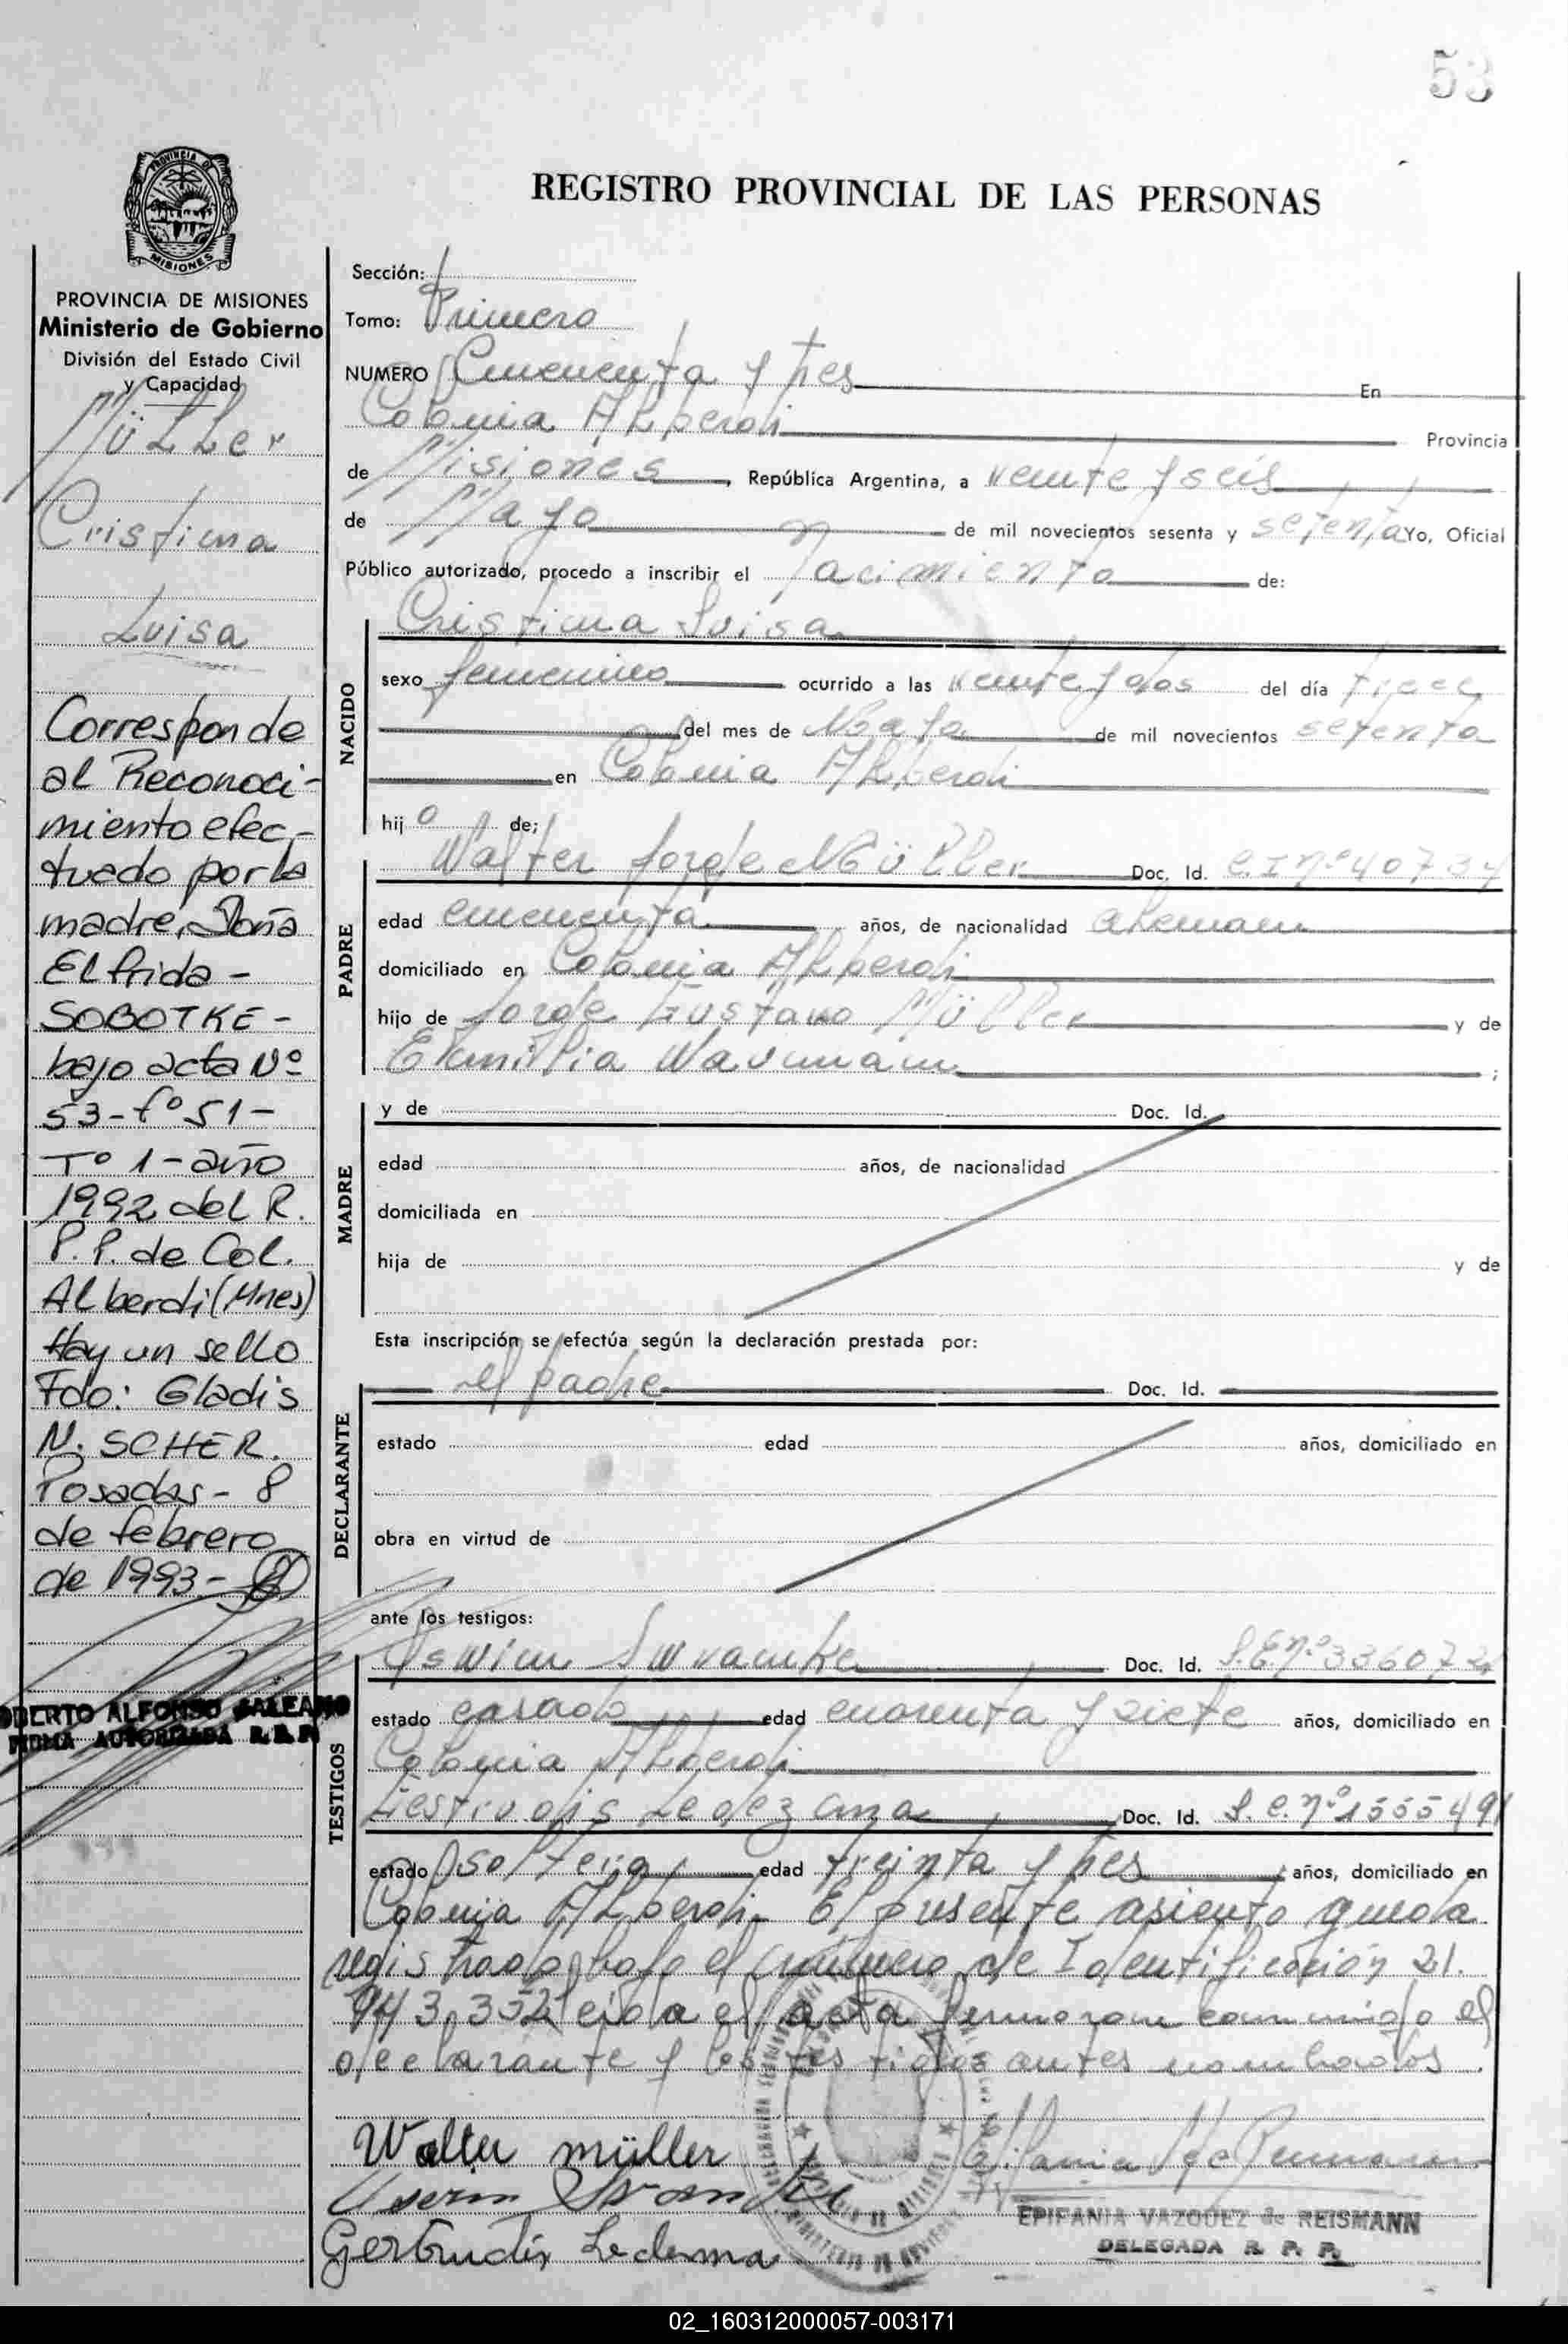 53
PROVINCIA DE
MISIONES
REGISTRO PROVINCIAL DE LAS PERSONAS
PROVINCIA DE MISIONES
Ministerio de Gobierno
División del Estado Civil
y Capacidad
Müller
Cristina
Luisa
Corresponde
al Reconoci-
miento efec-
tuado por la
madre, Doña
Elfrida -
SOBOTKE -
bajo acta Nº
53 - fº 51 -
Tº 1 - año
1992 del R.
P.P. de Col.
Alberdi (Mnes)
Hay un sello
Fdo: Gladis
N. SCHER.
Posadas - 8
de febrero
de 1993 -
ROBERTO ALFONSO GALEANO
FIRMA AUTORIZADA R.P.P.
Sección:
Tomo: Primero
NUMERO Cincuenta y tres En
Colonia Alberdi Provincia
de Misiones, República Argentina, a veinte y seis
de Mayo de mil novecientos sesenta y setenta Yo, Oficial
Público autorizado, procedo a inscribir el Nacimiento de:
NACIDO
Cristina Luisa
sexo femenino ocurrido a las veinte y dos del día trece
del mes de Mayo de mil novecientos setenta
en Colonia Alberdi
hijo de;
PADRE
Walter Jorge Müller Doc. Id. C.I nº 40734
edad cincuenta años, de nacionalidad aleman
domiciliado en Colonia Alberdi
hijo de Jorge Gustavo Müller y de
Emilia ;
MADRE
y de Doc. Id.
edad años, de nacionalidad
domiciliada en
hija de y de
Esta inscripción se efectúa según la declaración prestada por:
DECLARANTE
el padre Doc. Id.
estado edad años, domiciliado en
obra en virtud de
ante los testigos:
TESTIGOS
Oswin Swramke Doc. Id. L.E. nº 336072
estado casado edad cuarenta y siete años, domiciliado en
Colonia Alberdi
Ledezma Doc. Id. L.C. nº 1555491
estado soltera edad treinta y tres años, domiciliado en
Colonia Alberdi. El presente asiento queda
registrado bajo el número de Identificación 21.
943.352 leida el acta firmaron conmigo el
declarante y los testigos antes nombrados.
Walter müller
Gertrudis Ledesma
EPIFANIA VAZQUEZ de REISMANN
DELEGADA R. P. P.
02_160312000057-003171